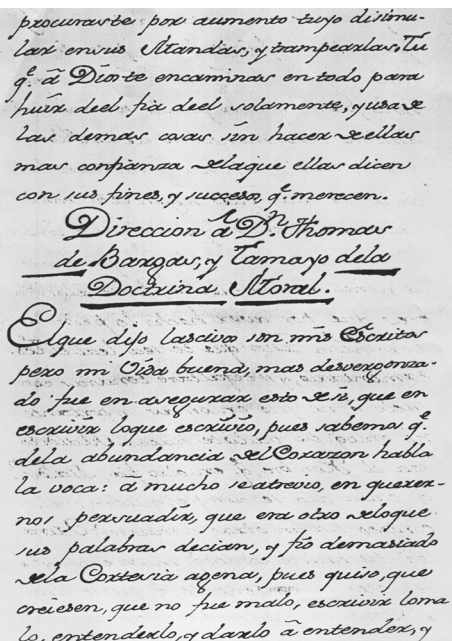 procuraste por aumento tuyo disimu-
lar en sus Mandas, y trampearlas. Tu
q.e â Dios te encaminas en todo para
huir de el fia de el solamente, y usa de
las demas cosas sin hacer de ellas
mas confianza de la que ellas dicen
con sus fines, y succesos, q.e merecen.
Direccion â D.n Thomas
de Bargas, y Tamayo de la
Doctrina Moral.
El que dijo lascivos son mis Escritos
pero mi Vida buena, mas desvergonza-
do fue en asegurar esto de si, que en
escrivir lo que escrivio, pues sabemos q.e
de la abundancia del Corazon habla
la voca: â mucho se atrevio, en querer-
nos persuadir, que era otro de lo que
sus palabras decian, y fio demasiado
de la Cortesia agena, pues quiso, que
creiesen, que no fue malo, escrivir lo ma
lo, entenderlo, y darlo â entender, y